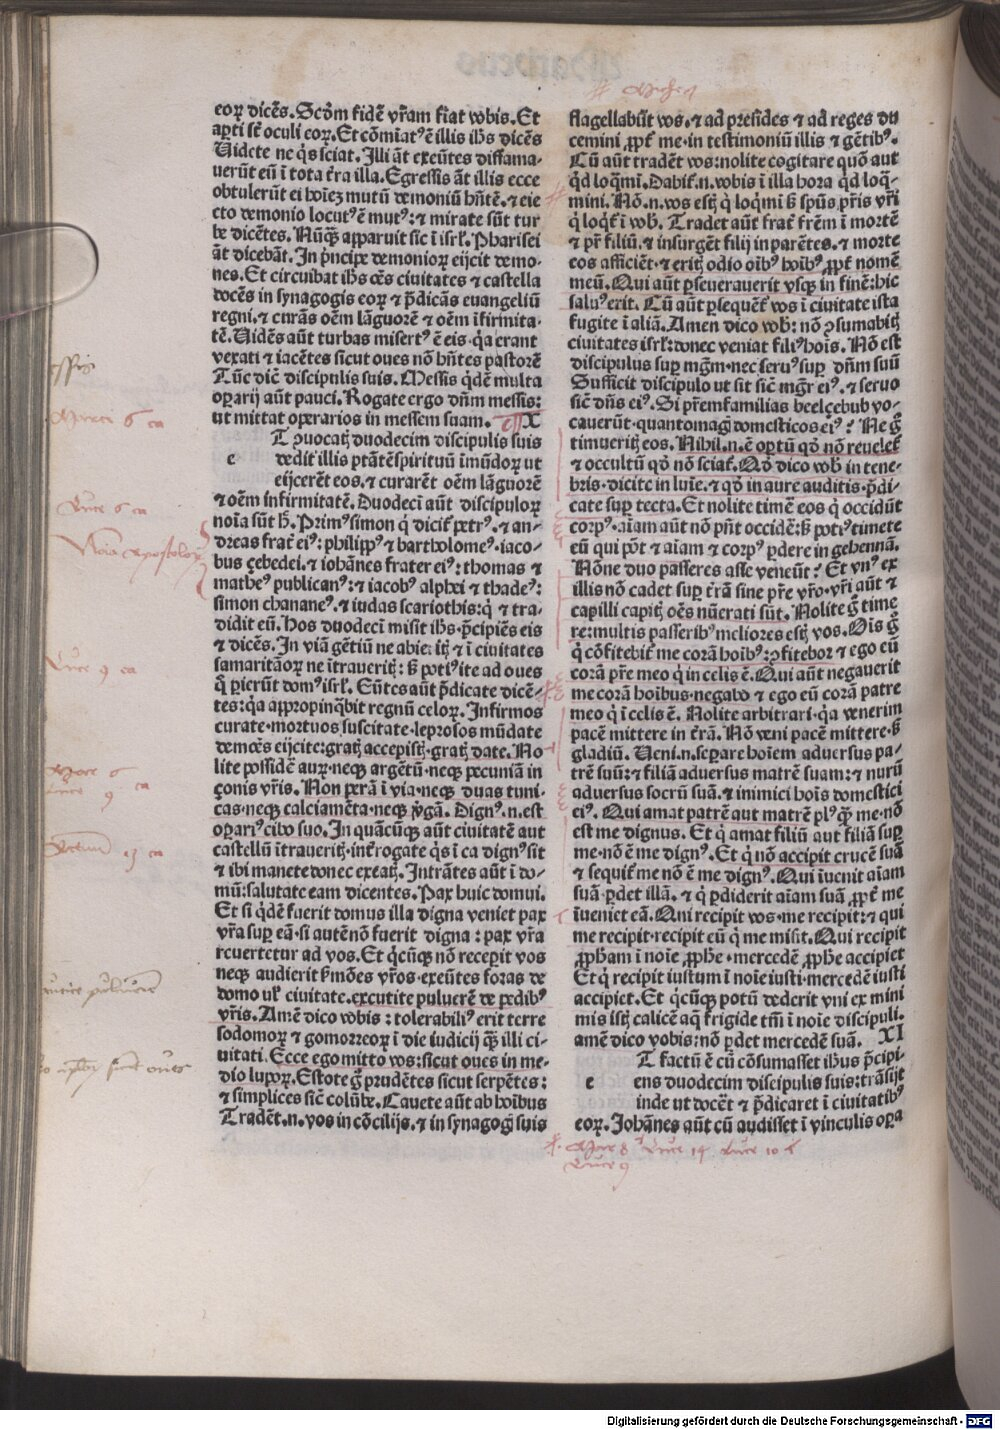 eoꝝ dicēs. Scḋm fidē vr̄am fiat vobis. Et
aꝑti sūt oculi eoꝝ. Et cōmiat᷒ ē illis ihs̄ dicēs
Videte ne q̇s sciat. Illi āt exeūtes diffama-
uerūt eū ī tota t̄ra illa. Egressis āt illis ecce
obtulerūt ei hoīeꝫ mutū demoniū hñtē. ⁊ eie
cto demonio locut᷒ ē mut᷒: ⁊ mirate sūt tur
be dicētes. Nūqꝫ apparuit sic ī isrl̄. Pharisei
āt dicebāt. In p̄ncipe demonioꝝ eijcit demo-
nes. Et circuibat ihs̄ oēs ciuitates ⁊ castella
docēs in synagogis eoꝝ ⁊ p̄dicās euangeliū
regni. ⁊ curās oēm lāguorē ⁊ oēm īfirmita-
tē. Vidēs aūt turbas misert᷒ ē eis. q̇a erant
vexati ⁊ iacētes sicut oues nō hñtes pastorē
Tūc dic̄ discipulis suis. Messis q̇dē multa
oꝑarij aūt pauci. Rogate ergo dn̄m messis:
ut mittat operarios in messem suam. X
T ꝯuocatꝭ duodecim discipulis suis
e dedit illis ptātē spirituū īmūdoꝝ ut
eijcerēt eos. ⁊ curarēt oēm lāguorē
⁊ oēm infirmitatē. Duodeci aūt discipuloꝝ
noīa sūt h̄. Prim᷒ simon q̇ dicit̄ petr᷒. ⁊ an-
dreas frat̄ ei᷒: philipp᷒ ⁊ bartholome᷒. iaco-
bus çebedei. ⁊ iohānes frater ei᷒: thomas ⁊
mathe᷒ publican᷒: ⁊ iacob᷒ alphei ⁊ thade᷒:
simon chanane᷒. ⁊ iudas scariothis: q̇ ⁊ tra-
didit eū. Hos duodecī misit ihs̄. p̄cipiēs eis
⁊ dicēs. In viā gētiū ne abieritꝭ ⁊ ī ciuitates
samaritāoꝝ ne ītraueritꝭ: sꝫ poti᷒ ite ad oues
q̄ ꝑierūt dom᷒ isrl̄. Eūtes aūt p̄dicate dicē-
tes: q̇a appropinq̇bit regnū celoꝝ. Infirmos
curate. mortuos suscitate. leprosos mūdate
demōes eijcite: gratꝭ accepistꝭ. gratꝭ date. No
lite possidē auꝝ. neqꝫ argētū. neqꝫ pecuniā in
çonis vr̄is. Non perā ī via. neqꝫ duas tuni
cas. neqꝫ calciamēta. neqꝫ v̇gā. Dign᷒.n.est
oꝑari᷒ cibo suo. In quācūqꝫ aūt ciuitatē aut
castellū ītraueritꝭ. int̄rogate q̇s ī ea dign᷒ sit
⁊ ibi manete donec exeatꝭ. Intrātes aūt ī do-
mū: salutate eam dicentes. Pax huic domui.
Et si q̇dē fuerit domus illa digna veniet pax
vr̄a suꝑ eā. si autē nō fuerit digna: pax vr̄a
reuertetur ad vos. Et q̇cūqꝫ nō receꝑit vos
neqꝫ audierit s̄mōes vr̄os. exeūtes foras de
domo uł ciuitate. excutite puluerē de pedib᷒
vr̄is. Amē dico vobis: tolerabili᷒ erit terre
sodomoꝝ ⁊ gomorreoꝝ ī die iudicij qꝫ illi ci-
uitati. Ecce ego mitto vos: sicut oues in me-
dio lupoꝝ. Estote g̊ prudētes sicut serpētes:
⁊ simplices sic̄ colūbe. Cauete aūt ab hoībus
Tradēt.n. vos in cōcilijs. ⁊ in synagogꝭ suis
flagellabūt vos. ⁊ ad presides ⁊ ad reges du
cemini ꝓpt̄ me. in testimoniū illis ⁊ gētib᷒.
Cū aūt tradēt vos: nolite cogitare quō aut
q̇d loq̇mī. Dabit̄.n. vobis ī illa hora q̇d loq̇-
mini. Nō.n. vos estꝭ q̇ loq̇mī sꝫ spūs p̄ris vr̄i
q̇ loq̇t̄ ī vob̄. Tradet aūt frat̄ fr̄em ī mortē
⁊ pr̄ filiū. ⁊ insurgēt filij in parētes. ⁊ morte
eos afficiēt. ⁊ eritꝭ odio oīb᷒ hoīb᷒ ꝓpt̄ nomē
meū. Qui aūt ꝑseuerauerit vsqꝫ in finē: hic
salu᷒ erit. Cū aūt ꝑsequēt̄ vos ī ciuitate ista
fugite ī aliā. Amen dico vob̄: nō ꝯsumabitꝭ
ciuitates isrl̄: donec veniat fili᷒ hoīs. Nō est
discipulus suꝑ mgr̄m. nec seru᷒ suꝑ dn̄m suū
Sufficit discipulo ut sit sic̄ mgr̄ ei᷒. ⁊ seruo
sic̄ dn̄s ei᷒. Si pr̄emfamilias beelçebub vo-
cauerūt. quantomagꝭ domesticos ei᷒? Ne g̊
timueritꝭ eos. Nihil.n.ē oꝑtū qḋ nō reuelet̄
⁊ occultū qḋ nō sciat̄. Qḋ dico vob̄ in tene-
bris. dicite in luīe. ⁊ qḋ in aure auditis. p̄di-
cate suꝑ tecta. Et nolite timē eos q̇ occidūt
corp᷒. aīam aūt nō pn̄t occidē: sꝫ poti᷒ timete
eū qui pōt ⁊ aīam ⁊ corp᷒ ꝑdere in gehennā.
Nōne duo passeres asse veneūt? Et vn᷒ ex
illis nō cadet suꝑ t̄rā sine pr̄e vr̄o. vr̄i aūt ⁊
capilli capitꝭ oēs nūerati sūt. Nolite g̊ time
re: multis passerib᷒ meliores estꝭ vos. Oīs g̊
q̇ cōfitebit̄ me corā hoīb᷒: ꝯfitebor ⁊ ego eū
corā pr̄e meo q̇ in celis ē. Qui aūt negauerit
me corā hoībus. negabo ⁊ ego eū corā patre
meo q̇ ī celis ē. Nolite arbitrari. q̇a venerim
pacē mittere in t̄rā. Nō veni pacē mittere. sꝫ
gladiū. Veni.n. seꝑare hoīem aduersus pa-
trē suū: ⁊ filiā aduersus matrē suam: ⁊ nurū
aduersus socrū suā. ⁊ inimici hoīs domestici
ei᷒. Qui amat patrē aut matrē pl᷒ qꝫ me. nō
est me dignus. Et q̇ amat filiū aut filiā suꝑ
me. nō ē me dign᷒. Et q̇ nō accipit crucē suā
⁊ sequit̄ me nō ē me dign᷒. Qui īuenit aīam
suā ꝑdet illā. ⁊ q̇ ꝑdiderit aīam suā ꝓpt̄ me
īueniet eā. Qui recipit vos. me recipit: ⁊ qui
me recipit. recipit eū q̇ me misit. Qui recipit
ꝓph̄am ī noīe ꝓph̄e. mercedē ꝓph̄e accipiet
Et q̇ recipit iustum ī noīe iusti. mercedē iusti
accipiet. Et q̇cūqꝫ potū dederit vni ex mini
mis istꝭ calicē aq̄ frigide tm̄ ī noīe discipuli.
amē dico vobis: nō ꝑdet mercedē suā. XI
T factū ē cū cōsumasset ihs̄us p̄cipi-
e ens duodecim discipulis suis: trāsijt
inde ut docēt ⁊ p̄dicaret ī ciuitatib᷒
eoꝝ. Johānes aūt cū audisset ī vinculis oꝑa
Marci 6 ca
Luce 6 ca
Noīa apostoloꝝ
Luce 9 ca
Mar 6
Luce 9 ca
Mar 8 Luce 14 Luce 10
Luce 9
Digitalisierung gefördert durch die Deutsche Forschungsgemeinschaft - DFG